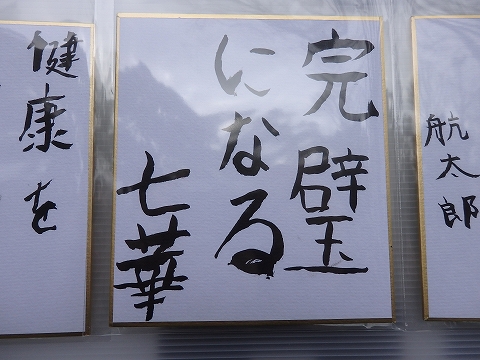 航太郎
完璧
になる
七華
健康を